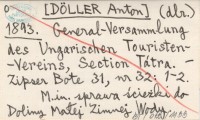 o [DÖLLER Anton] (dln.)
1893. General-Versammlung
des Ungarischen Touristen-
-Vereins, Section Tátra. -
Zipser Bote 31, nr 32: 1-2.
M.in. sprawa ścieżki do
Doliny Małej Zimnej Wody.